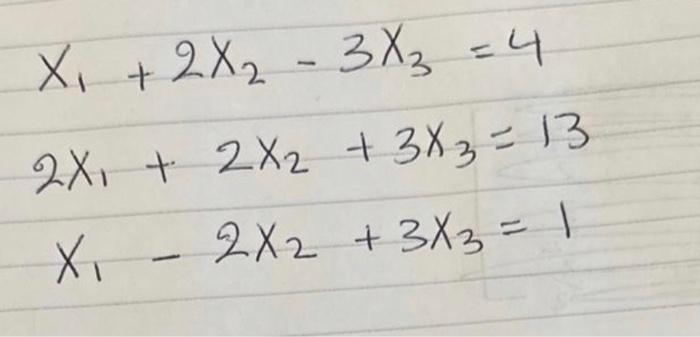 X₁ + 2X₂ - 3X₃ = 4
2X₁ + 2X₂ + 3X₃ = 13
X₁ - 2X₂ + 3X₃ = 1